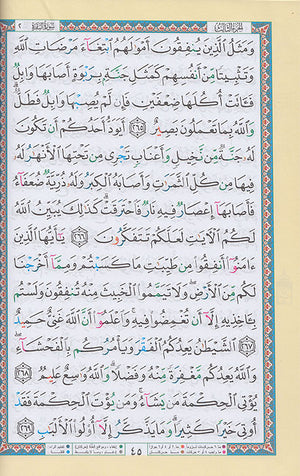 وَمَثَلُ ٱلَّذِينَ يُنفِقُونَ أَمْوَٰلَهُمُ ٱبْتِغَآءَ مَرْضَاتِ ٱللَّهِ
وَتَثْبِيتًا مِّنْ أَنفُسِهِمْ كَمَثَلِ جَنَّةٍۭ بِرَبْوَةٍ أَصَابَهَا وَابِلٌ
فَـَٔاتَتْ أُكُلَهَا ضِعْفَيْنِ فَإِن لَّمْ يُصِبْهَا وَابِلٌ فَطَلٌّ
وَٱللَّهُ بِمَا تَعْمَلُونَ بَصِيرٌ ٢٦٥ أَيَوَدُّ أَحَدُكُمْ أَن تَكُونَ
لَهُۥ جَنَّةٌ مِّن نَّخِيلٍ وَأَعْنَابٍ تَجْرِى مِن تَحْتِهَا ٱلْأَنْهَٰرُ لَهُۥ
فِيهَا مِن كُلِّ ٱلثَّمَرَٰتِ وَأَصَابَهُ ٱلْكِبَرُ وَلَهُۥ ذُرِّيَّةٌ ضُعَفَآءُ
فَأَصَابَهَآ إِعْصَارٌ فِيهِ نَارٌ فَٱحْتَرَقَتْ كَذَٰلِكَ يُبَيِّنُ ٱللَّهُ
لَكُمُ ٱلْـَٔايَٰتِ لَعَلَّكُمْ تَتَفَكَّرُونَ ٢٦٦ يَٰٓأَيُّهَا ٱلَّذِينَ
ءَامَنُوٓا۟ أَنفِقُوا۟ مِن طَيِّبَٰتِ مَا كَسَبْتُمْ وَمِمَّآ أَخْرَجْنَا
لَكُم مِّنَ ٱلْأَرْضِ وَلَا تَيَمَّمُوا۟ ٱلْخَبِيثَ مِنْهُ تُنفِقُونَ وَلَسْتُم
بِـَٔاخِذِيهِ إِلَّآ أَن تُغْمِضُوا۟ فِيهِ وَٱعْلَمُوٓا۟ أَنَّ ٱللَّهَ غَنِىٌّ حَمِيدٌ
٢٦٧ ٱلشَّيْطَٰنُ يَعِدُكُمُ ٱلْفَقْرَ وَيَأْمُرُكُم بِٱلْفَحْشَآءِ
وَٱللَّهُ يَعِدُكُم مَّغْفِرَةً مِّنْهُ وَفَضْلًا وَٱللَّهُ وَٰسِعٌ عَلِيمٌ ٢٦٨
يُؤْتِى ٱلْحِكْمَةَ مَن يَشَآءُ وَمَن يُؤْتَ ٱلْحِكْمَةَ فَقَدْ
أُوتِىَ خَيْرًا كَثِيرًا وَمَا يَذَّكَّرُ إِلَّآ أُو۟لُوا۟ ٱلْأَلْبَٰبِ ٢٦٩
٤٥